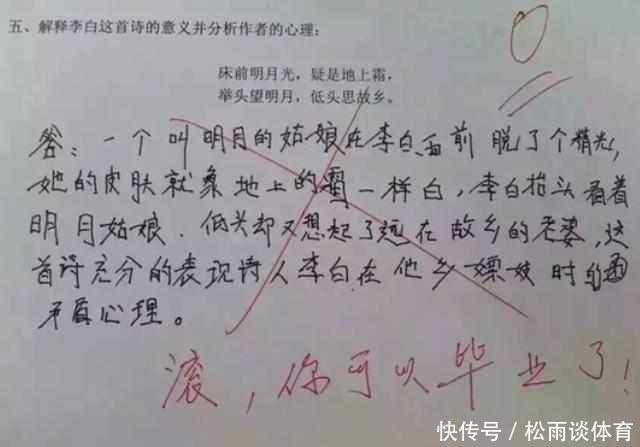 五、解释李白这首诗的意义并分析作者的心理:
床前明月光，疑是地上霜，
举头望明月，低头思故乡。
0
答：一个叫明月的姑娘在李白面前脱了个精光,
她的皮肤就象地上的霜一样白，李白抬头看着
明月姑娘．低头却又想起了远在故乡的老婆,这
首诗充分的表现诗人李白在他乡嫖妓时的
矛盾心理。
滚，你可以毕业了!
快传号／松雨谈体育